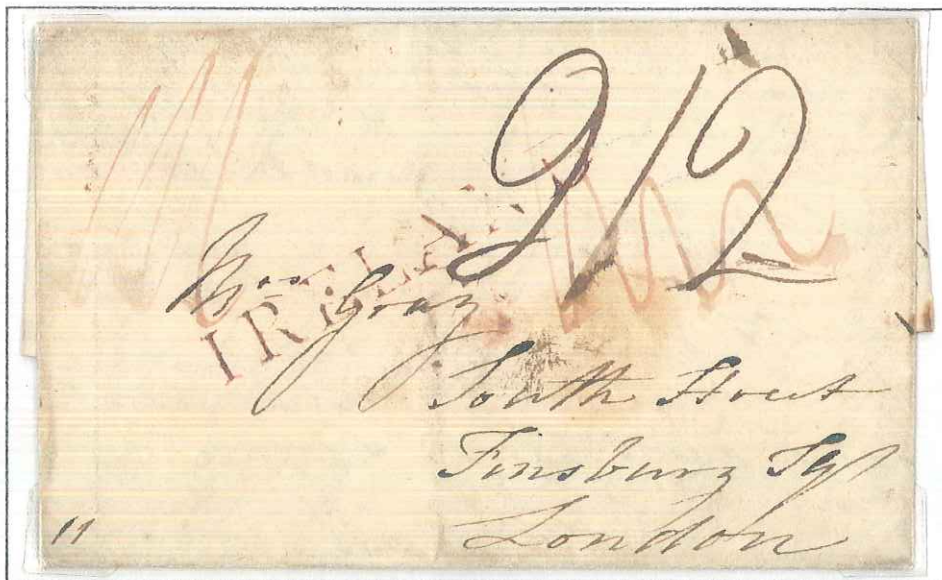 2/2
IRELAND
Mrs Gray
South Street
Finsbury Sqr
London
11